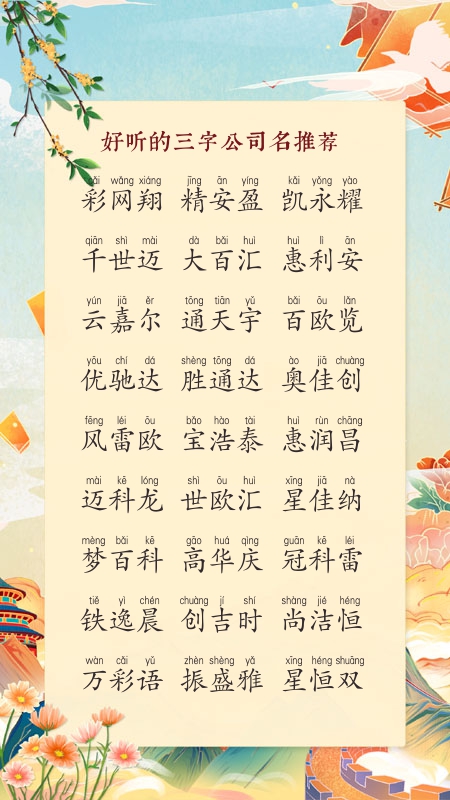 好听的三字公司名推荐
cǎi wǎng xiáng jīng ān yíng kǎi yǒng yào
彩网翔 精安盈 凯永耀
qiān shì mài dà bǎi huì huì lì ān
千世迈 大百汇 惠利安
yún jiā ěr tōng tiān yǔ bǎi ōu lǎn
云嘉尔 通天宇 百欧览
yōu chí dá shèng tōng dá ào jiā chuàng
优驰达 胜通达 奥佳创
fēng léi ōu bǎo hào tài huì rùn chāng
风雷欧 宝浩泰 惠润昌
mài kē lóng shì ōu huì xīng jiā nà
迈科龙 世欧汇 星佳纳
mèng bǎi kē gāo huá qìng guān kē léi
梦百科 高华庆 冠科雷
tiě yì chén chuàng jí shí shàng jié héng
铁逸晨 创吉时 尚洁恒
wàn cǎi yǔ zhèn shèng yǎ xīng héng shuāng
万彩语 振盛雅 星恒双